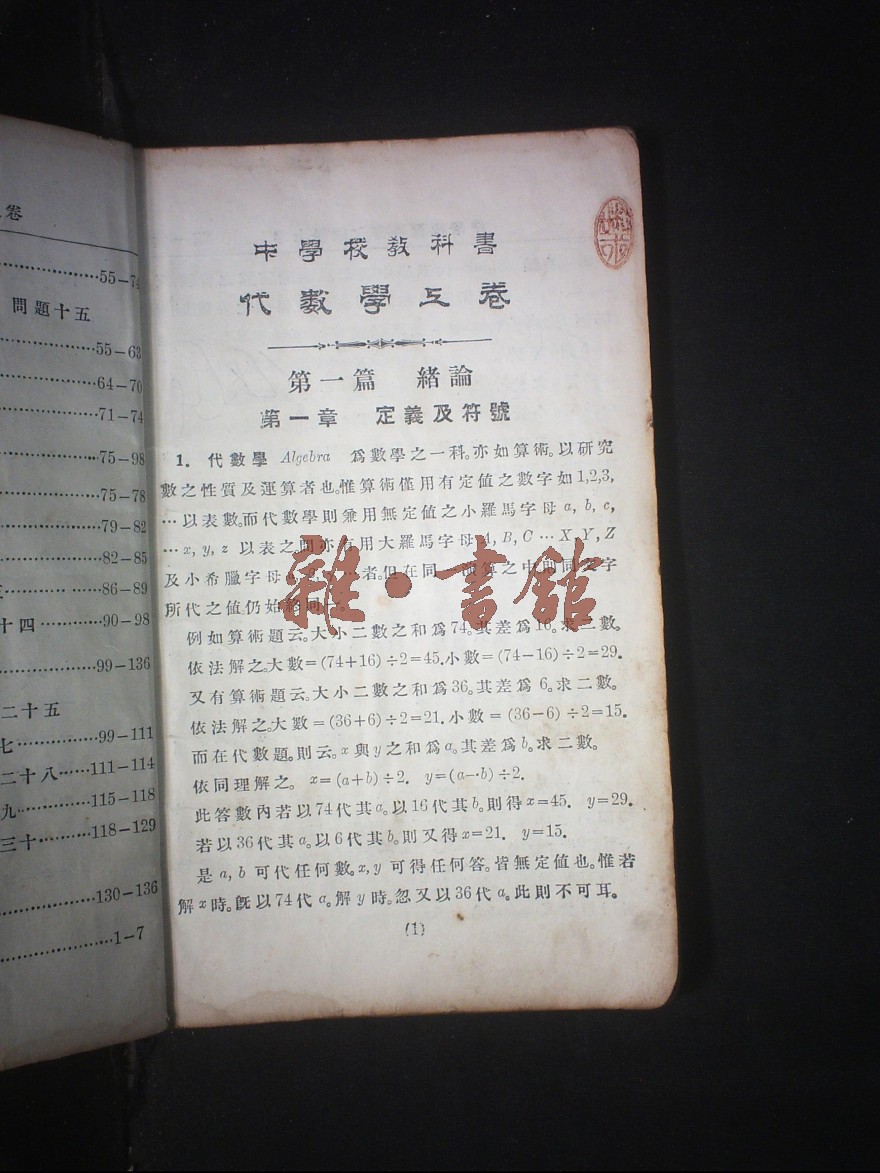 卷
55-74
問題十五
55-63
64-70
71-74
75-98
75-78
79-82
82-85
86-89
十四 90-98
99-136
二十五
七 99-111
二十八 111-114
九 115-118
三十 118-129
130-136
1-7
中學校教科書
代數學上卷
第一篇 緒論
第一章 定義及符號
1. 代數學 Algebra 爲數學之一科。亦如算術。以研究
數之性質及運算者也。惟算術僅用有定值之數字如1,2,3,
…以表數。而代數學則兼用無定值之小羅馬字母 a, b, c,
…x, y, z 以表之間亦有用大羅馬字母 A, B, C … X, Y, Z
及小希臘字母 …者。但在同一演算之中則同文字
所代之值仍始終同一。
例如算術題云。大小二數之和爲74。其差爲16。求二數。
依法解之。大數=(74+16)÷2=45. 小數=(74-16)÷2=29.
又有算術題云。大小二數之和爲36。其差爲6。求二數。
依法解之。大數=(36+6)÷2=21. 小數=(36-6)÷2=15.
而在代數題。則云。x 與 y 之和爲a。其差爲b。求二數。
依同理解之。 x=(a+b)÷2. y=(a-b)÷2.
此答數內若以74代其a。以16代其b。則得x=45. y=29.
若以36代其a。以6代其b。則又得x=21. y=15.
是 a, b 可代任何數。x, y 可得任何答。皆無定値也。惟若
解 x 時。旣以74代 a。解 y 時。忽又以36代 a。此則不可耳。
(1)
雜·書館